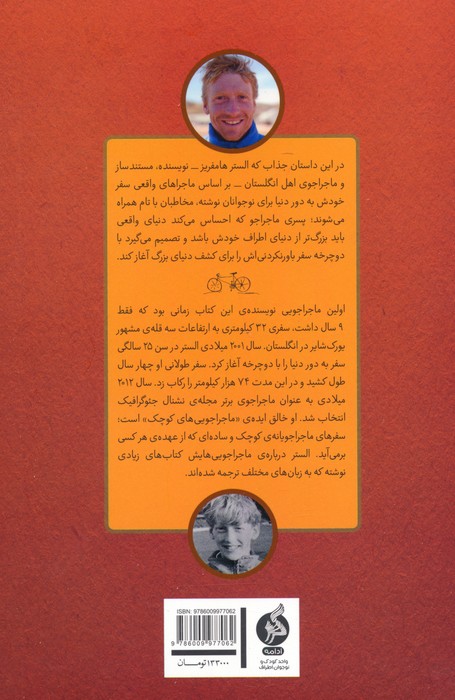 در این داستان جذاب که الستر هامفریز ــ نویسنده، مستندساز
و ماجراجوی اهل انگلستان ــ بر اساس ماجراهای واقعی سفر
خودش به دور دنیا برای نوجوانان نوشته، مخاطبان با تام همراه
می‌شوند؛ پسری ماجراجو که احساس می‌کند دنیای واقعی
باید بزرگ‌تر از دنیای اطراف خودش باشد و تصمیم می‌گیرد با
دوچرخه سفر باورنکردنی‌اش را برای کشف دنیای بزرگ آغاز کند.
اولین ماجراجویی نویسنده‌ی این کتاب زمانی بود که فقط
۹ سال داشت، سفری ۳۲ کیلومتری به ارتفاعات سه قله‌ی مشهور
یورک‌شایر در انگلستان. سال ۲۰۰۱ میلادی الستر در سن ۲۵ سالگی
سفر به دور دنیا را با دوچرخه آغاز کرد. سفر طولانی او چهار سال
طول کشید و در این مدت ۷۴ هزار کیلومتر را رکاب زد. سال ۲۰۱۲
میلادی به عنوان ماجراجوی برتر مجله‌ی نشنال جئوگرافیک
انتخاب شد. او خالق ایده‌ی «ماجراجویی‌های کوچک» است؛
سفرهای ماجراجویانه‌ی کوچک و ساده‌ای که از عهده‌ی هر کسی
برمی‌آید. الستر درباره‌ی ماجراجویی‌هایش کتاب‌های زیادی
نوشته که به زبان‌های مختلف ترجمه شده‌اند.
ISBN: 9786009977062
9 786009 977062
۱۳۳۰۰۰ تومــان
ادامه
واحد کودک و
نوجوان اطراف